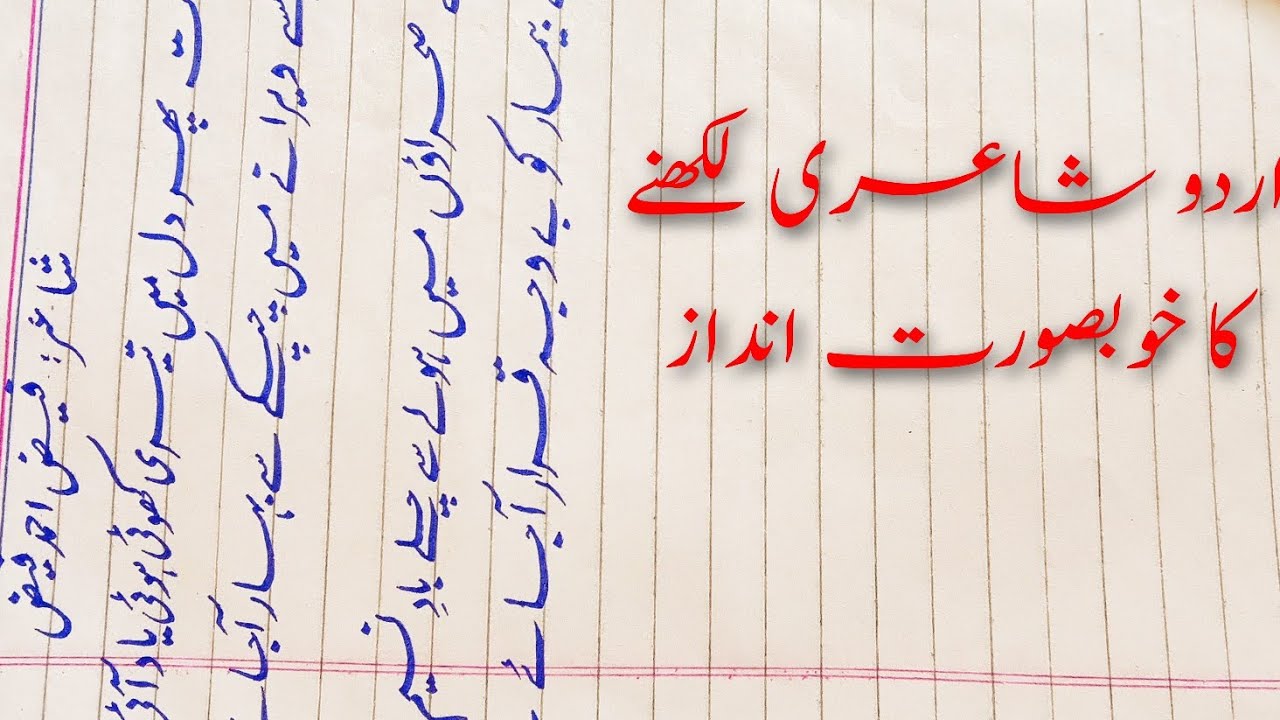 اردو شاعری لکھنے
کا خوبصورت انداز
شاعر: فیض احمد فیض
پھر دل میں تیری کھوئی ہوئی یاد آئی
ویرانے میں چپکے سے بہار آجا
صحراؤں میں ہولے سے چلے بادِ نسیم
بیمار کو بے وجہ قرار آجائے